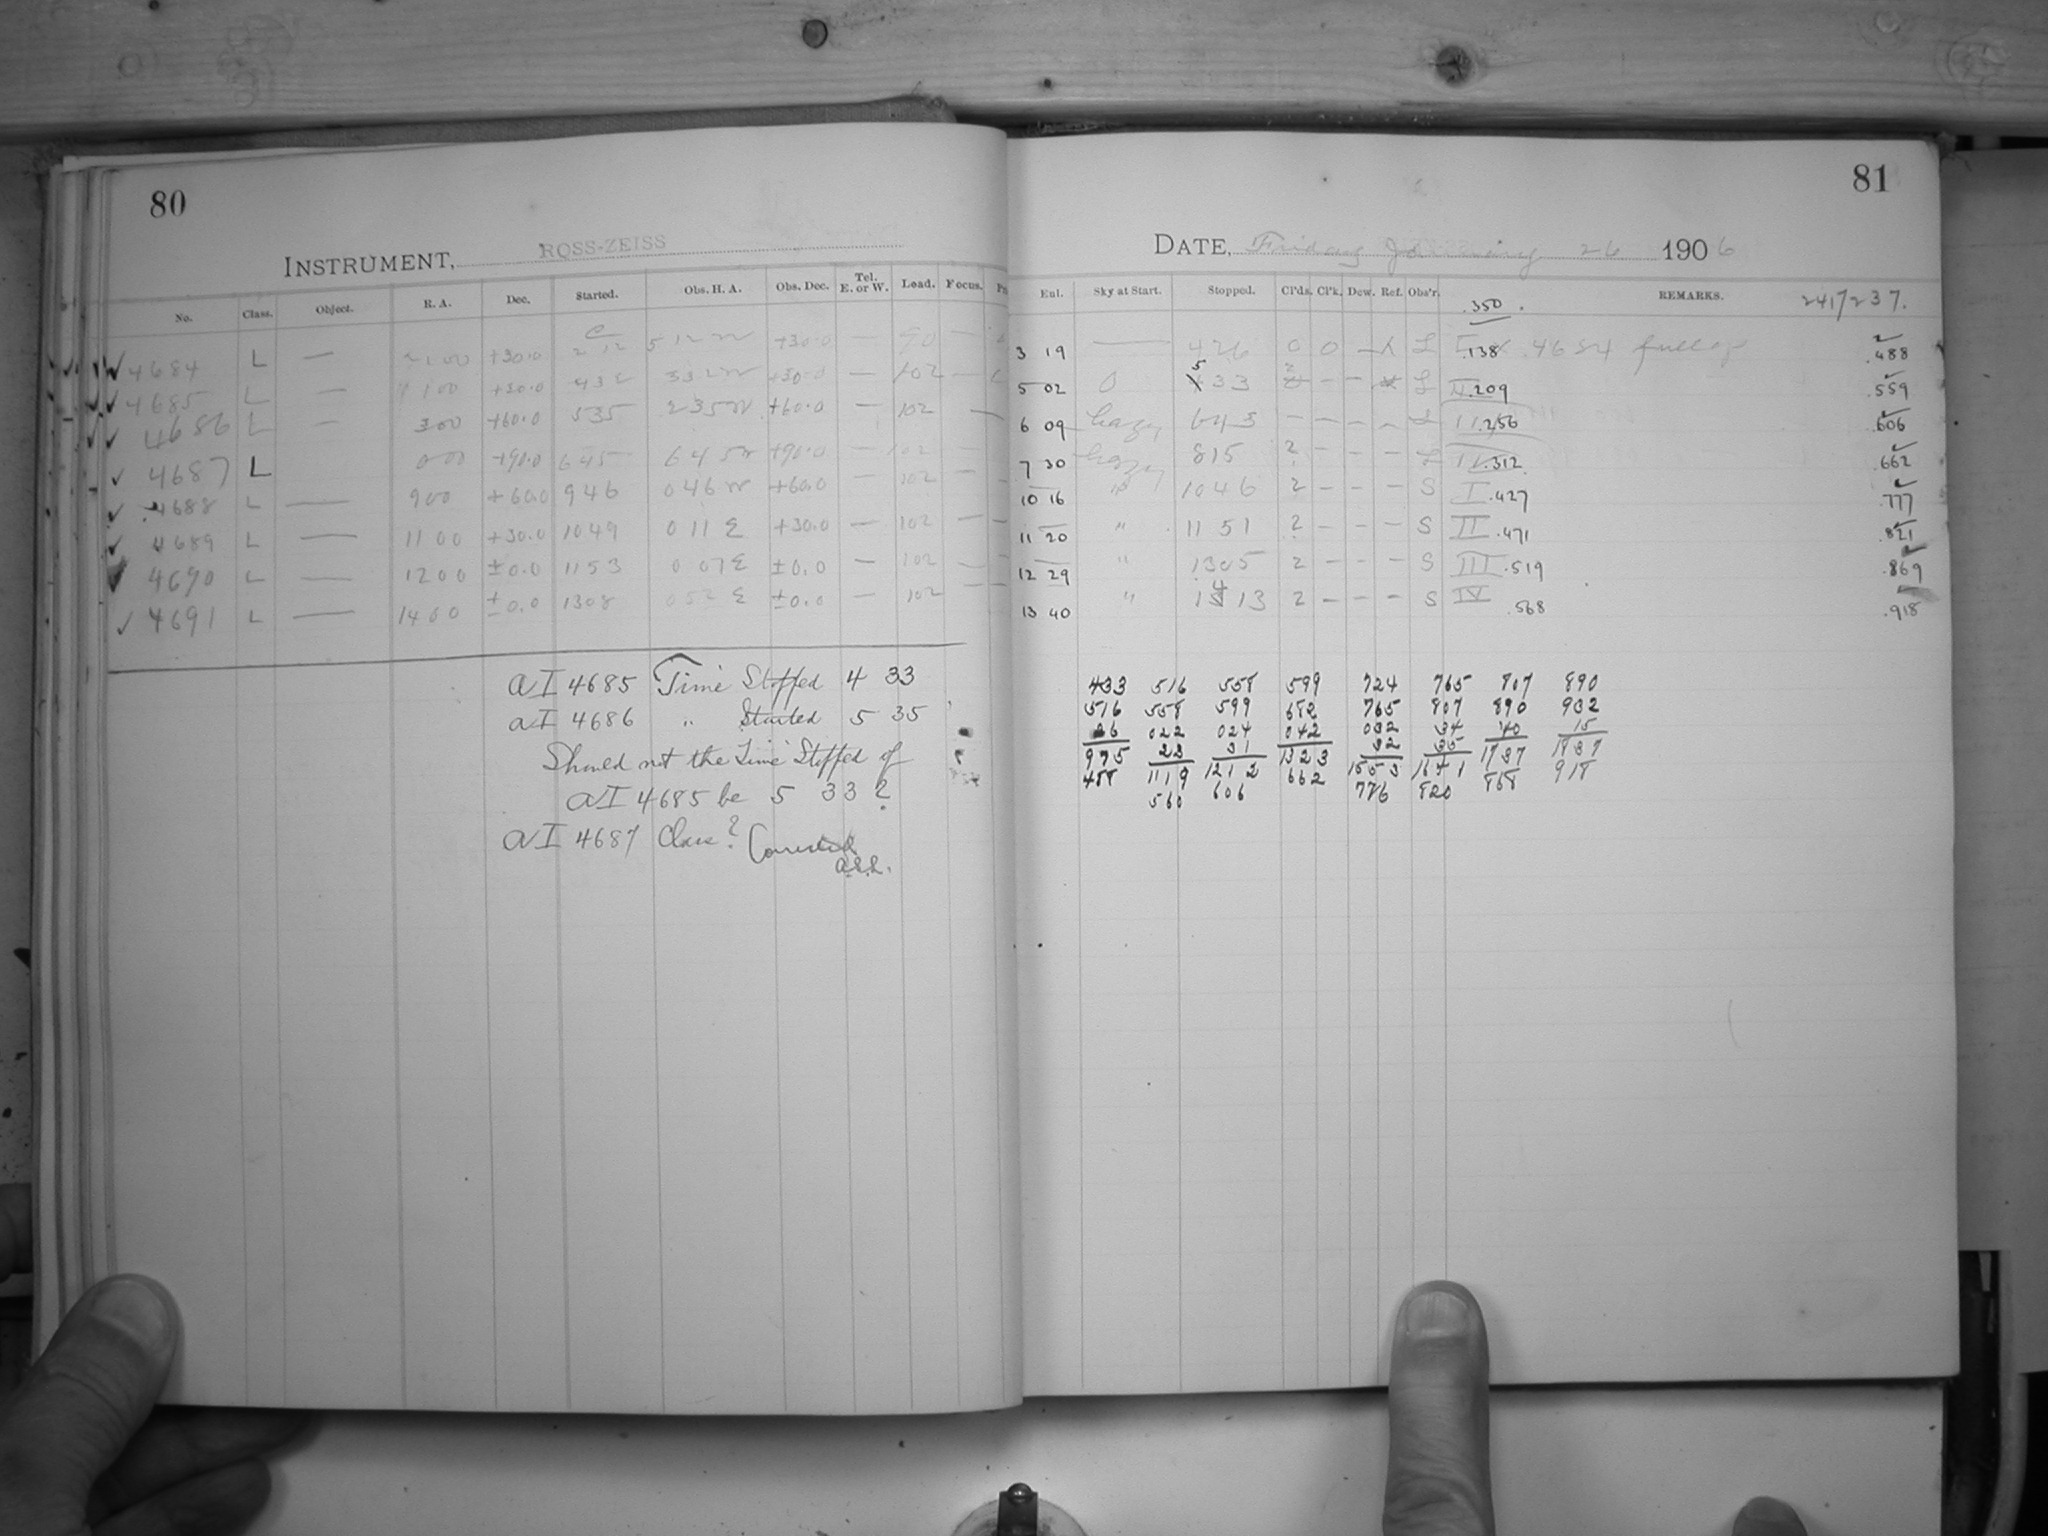 80
INSTRUMENT, ROSS-ZEISS
No. Class. Object. R. A. Dec. Started. Obs. H. A. Obs. Dec. Tel. E. or W. Load. Focus.
4684 L — +30.0 2 12 5 12 W +30.0 — 90 —
4685 L — 1 00 +30.0 432 332 W +30.0 — 102 —
4686 L — 300 +60.0 535 235 W +60.0 — 102 —
4687 L 000 +90.0 645 645 W +90.0 — 102 —
4688 L — 900 +60.0 946 046 W +60.0 102 —
4689 L — 1100 +30.0 1049 011 E +30.0 — 102 —
4690 L — 1200 ±0.0 1153 007 E ±0.0 — 102 —
4691 L — 1400 ±0.0 1308 052 E ±0.0 — 102 —
aI 4685 Time Stopped 4 33
aI 4686 " Started 5 35
Should not the Time Stopped of
aI 4685 be 5 33?
aI 4687 Class? Corrected
81
DATE, Friday January 26 1906
Eul. Sky at Start. Stopped. Cl'ds. Cl'k. Dew. Ref. Obs'r. .350 REMARKS. 2417237.
3 19 — 426 0 0 — L .138 .4684 .488
5 02 0 5 33 2 — — L II .209 .559
6 09 hazy 643 — — — — L .256 .606
7 30 hazy 815 2 — — — L .312 .662
10 16 " 1046 2 — — — S I .427 .777
11 20 " 1151 2 — — — S II .471 .821
12 29 " 1305 2 — — — S III .519 .869
13 40 " 1413 2 — — — S IV .568 .918
433 516 558 599 724 765 807 890
516 558 599 682 765 807 890 932
26 022 024 042 032 34 40 15
975 23 31 1323 32 35 1737 1837
488 1119 1212 662 1553 1641 868 918
560 606 776 820